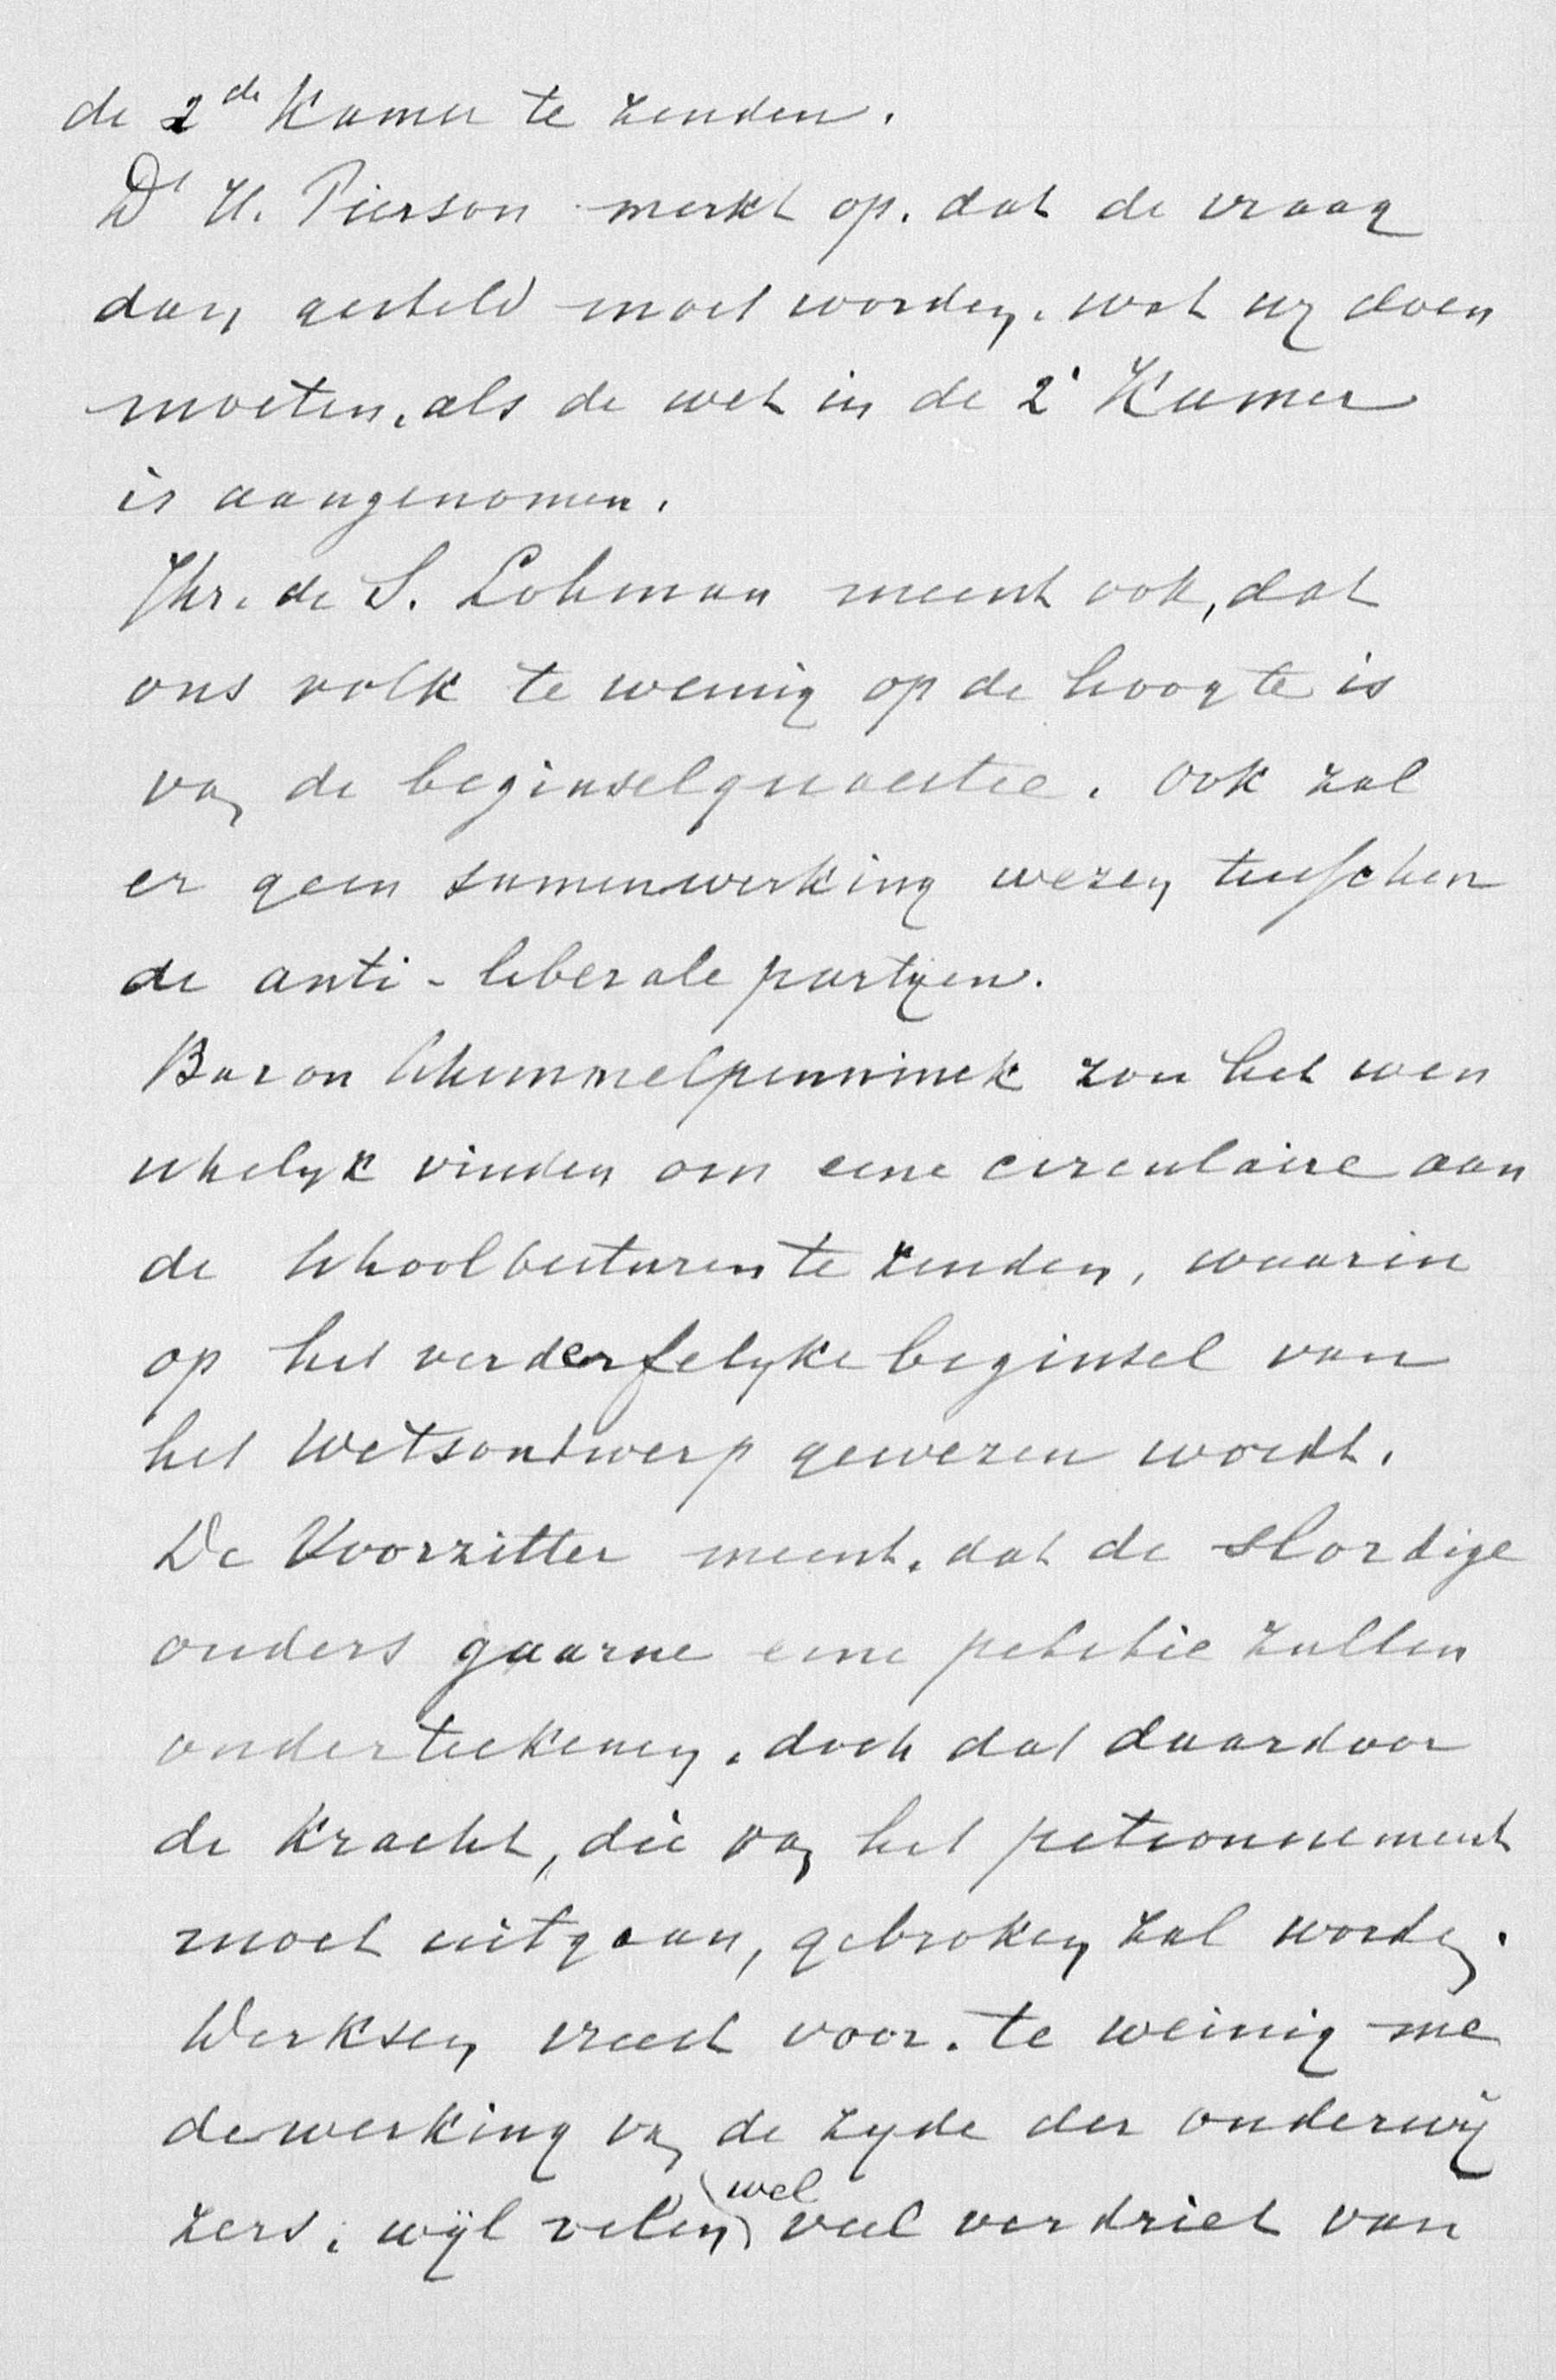 de 2de Kamer te zenden.
Dr H. Pierson merkt op, dat de vraag
dan gesteld moet worden, wat wij doen
moeten, als de wet in de 2e Kamer
is aangenomen.
Jhr. de S. Lohman meent ook, dat
ons volk te weinig op de hoogte is
van de beginselquaestie. Ook zal
er geen samenwerking wezen tusschen
de anti-liberale partijen.
Baron Schimmelpenninck zou het wen
schelyk vinden om eene circulaire aan
de schoolbesturen te zenden, waarin
op het verderfelyke beginsel van
het Wetsontwerp gewezen wordt.
De Voorzitter meent, dat de slordige
ouders gaarne eene petitie zullen
onderteekenen, doch dat daardoor
de kracht, die van het petionnement
moet uitgaan, gebroken zal worden.
Derksen vreest voor te weinig me
dewerking van de zyde der onderwij
zers, wijl velen wel veel verdriet van